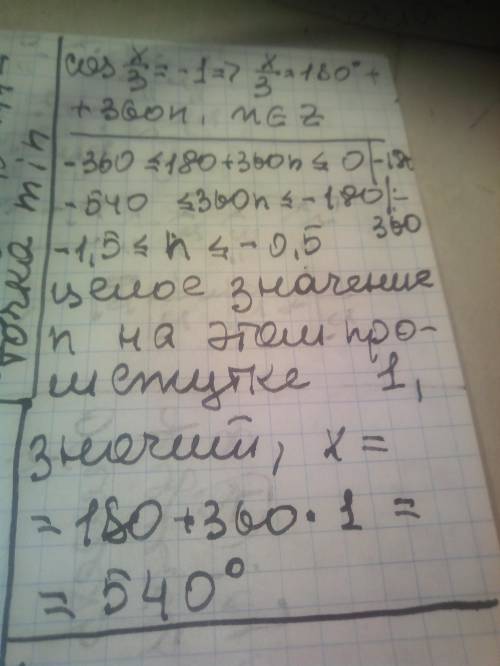 cos x/3 = -1 => x/3 = 180° +
+ 360n, n ∈ Z
-360 ≤ 180+360n ≤ 0 |-18
-540 ≤ 360n ≤ -180 |:
360
-1,5 ≤ n ≤ -0,5
целое значение
n на этом про-
межутке 1,
значий, x =
= 180 + 360 · 1 =
= 540°
точка min